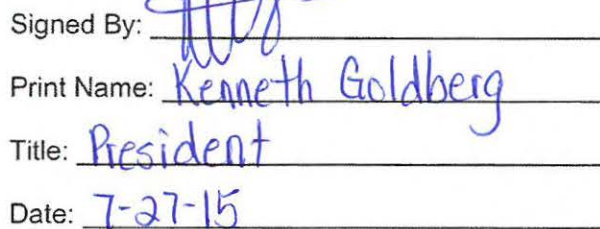 Signed By:
Print Name: Kenneth Goldberg
Title: President
Date: 7-27-15